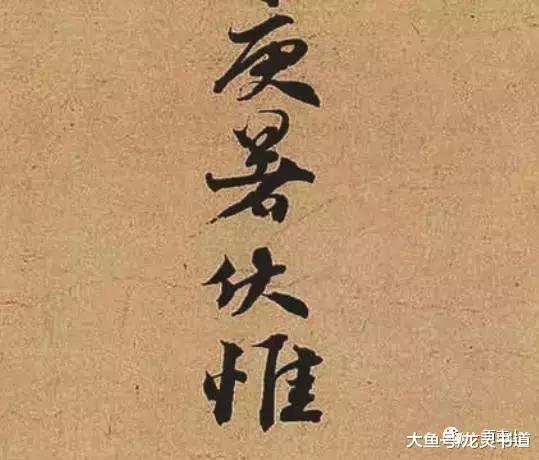 庚暑伏惟
大鱼号/龙灵书道